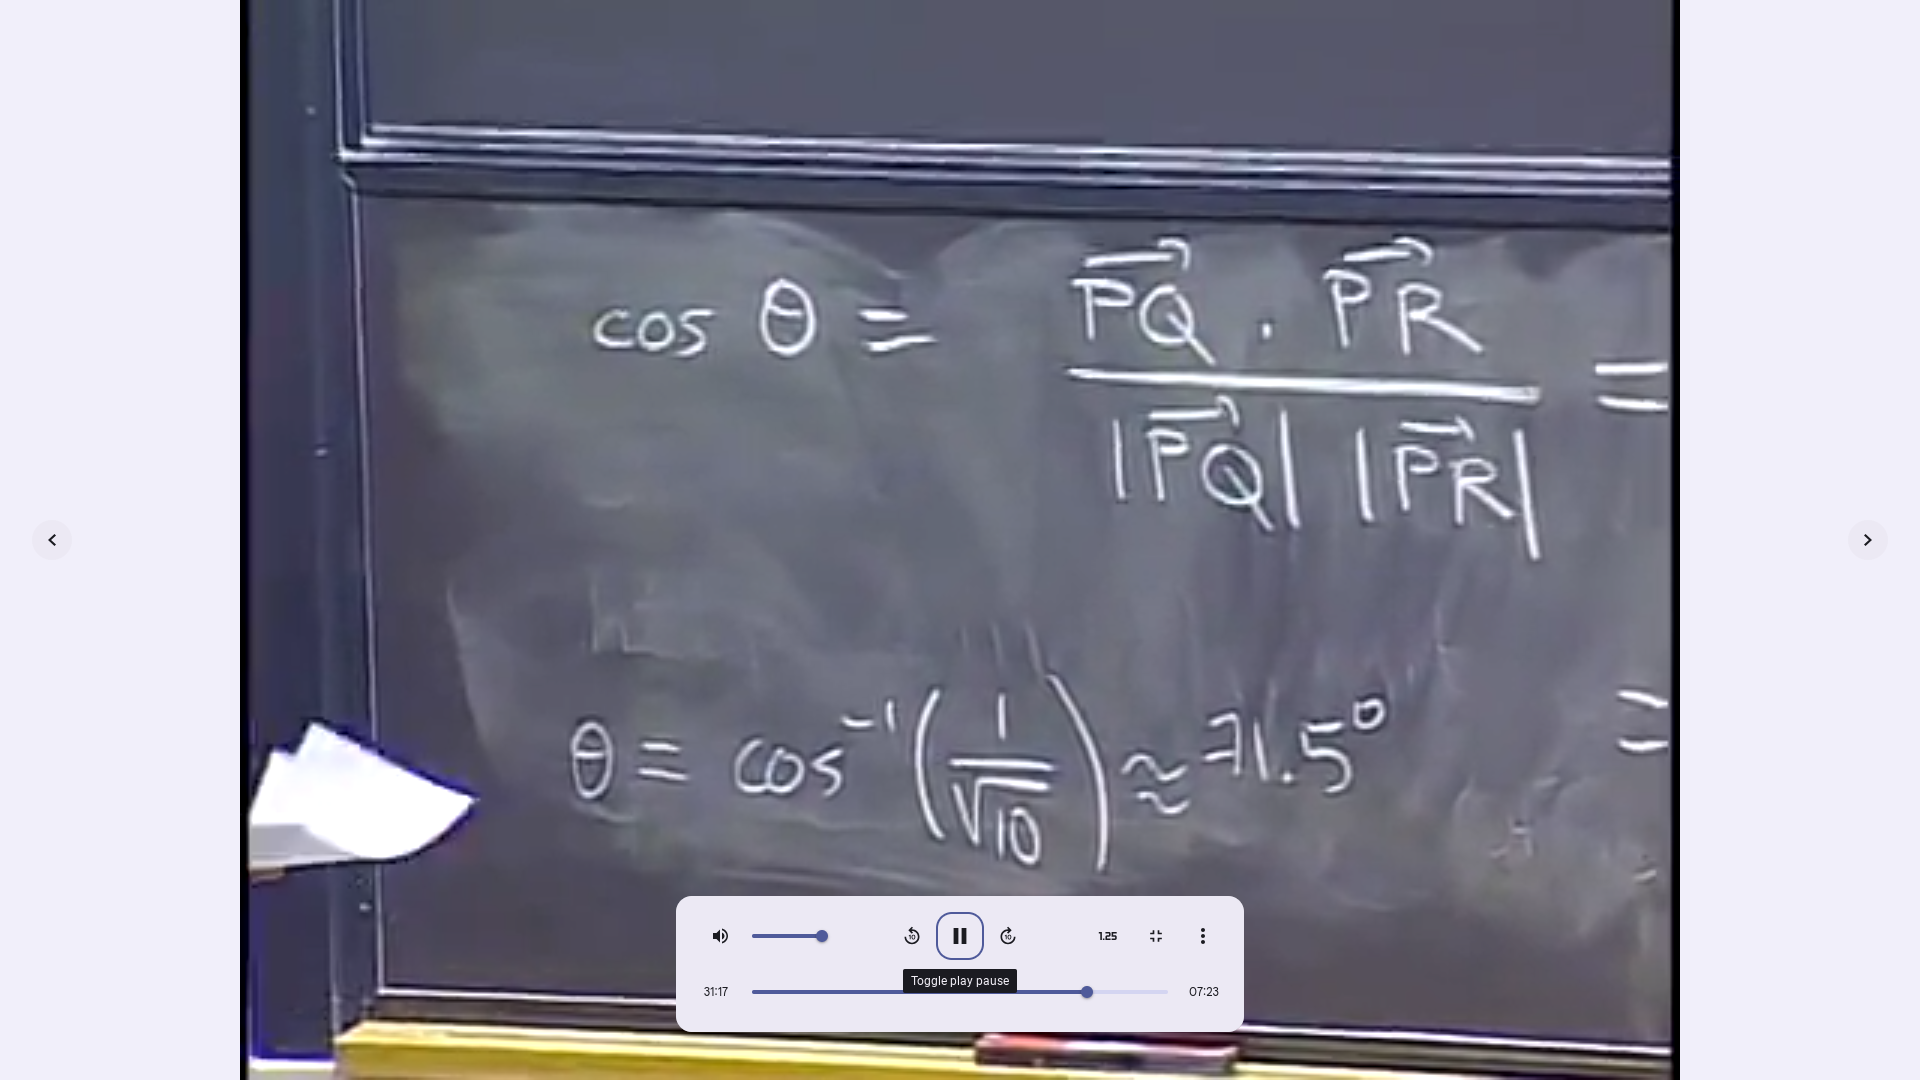 cos θ = PQ · PR =
|PQ| |PR|
θ = cos⁻¹(1/√10) ≈ 71.5° =
10
10
1.25
Toggle play pause
31:17
07:23